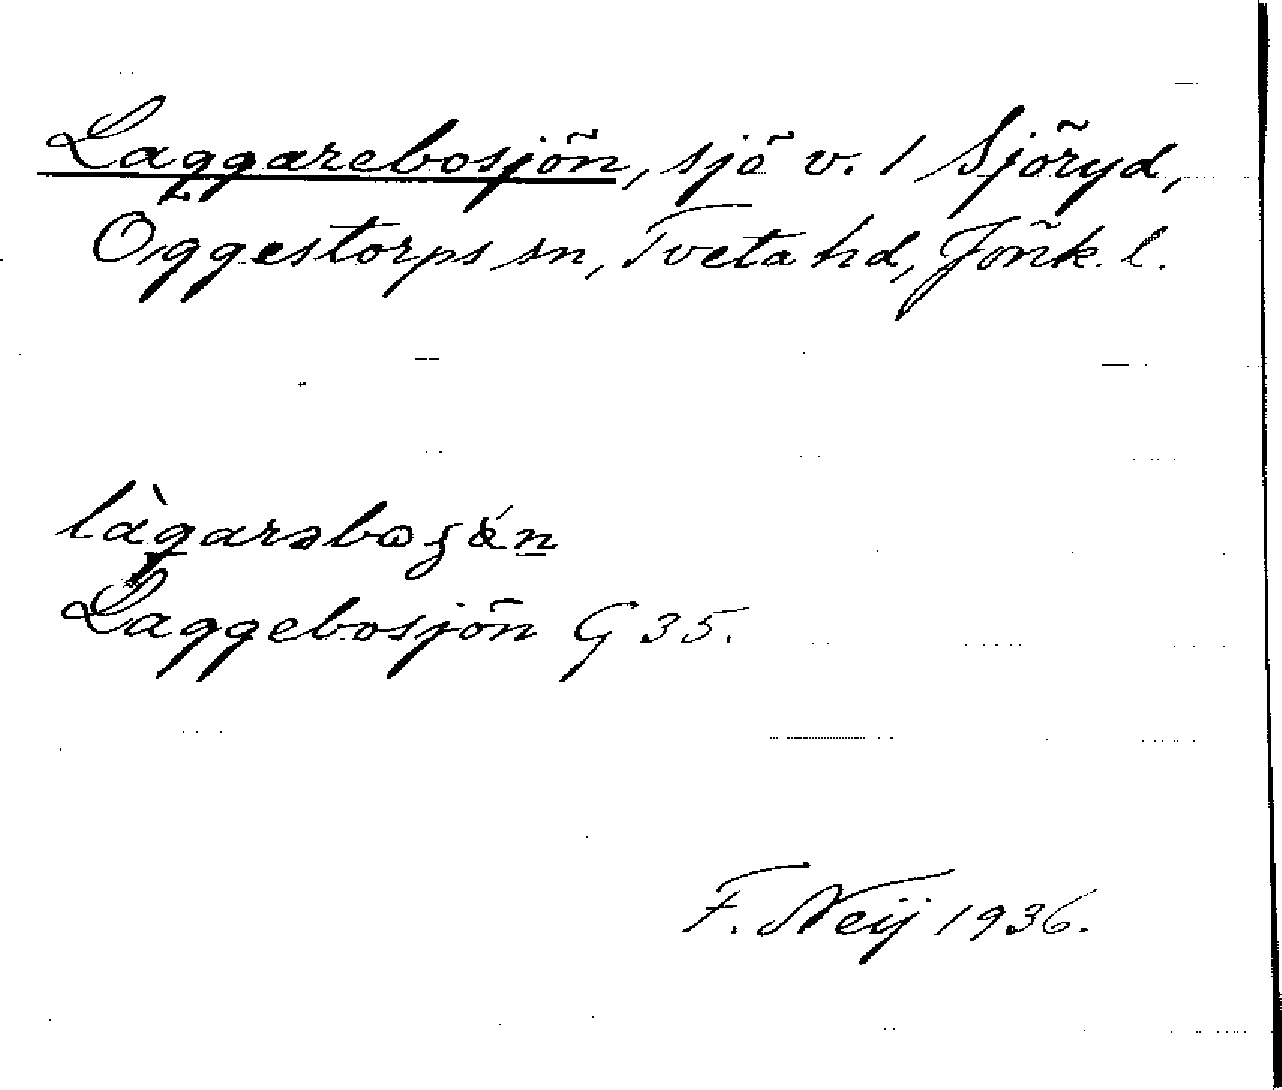 Laggarebosjön, sjö v. 1 Sjöryd,
Oggestorps sn, Tveta hd, Jönk. l.
Laggebosjön G 35.
F. Neij 1936.